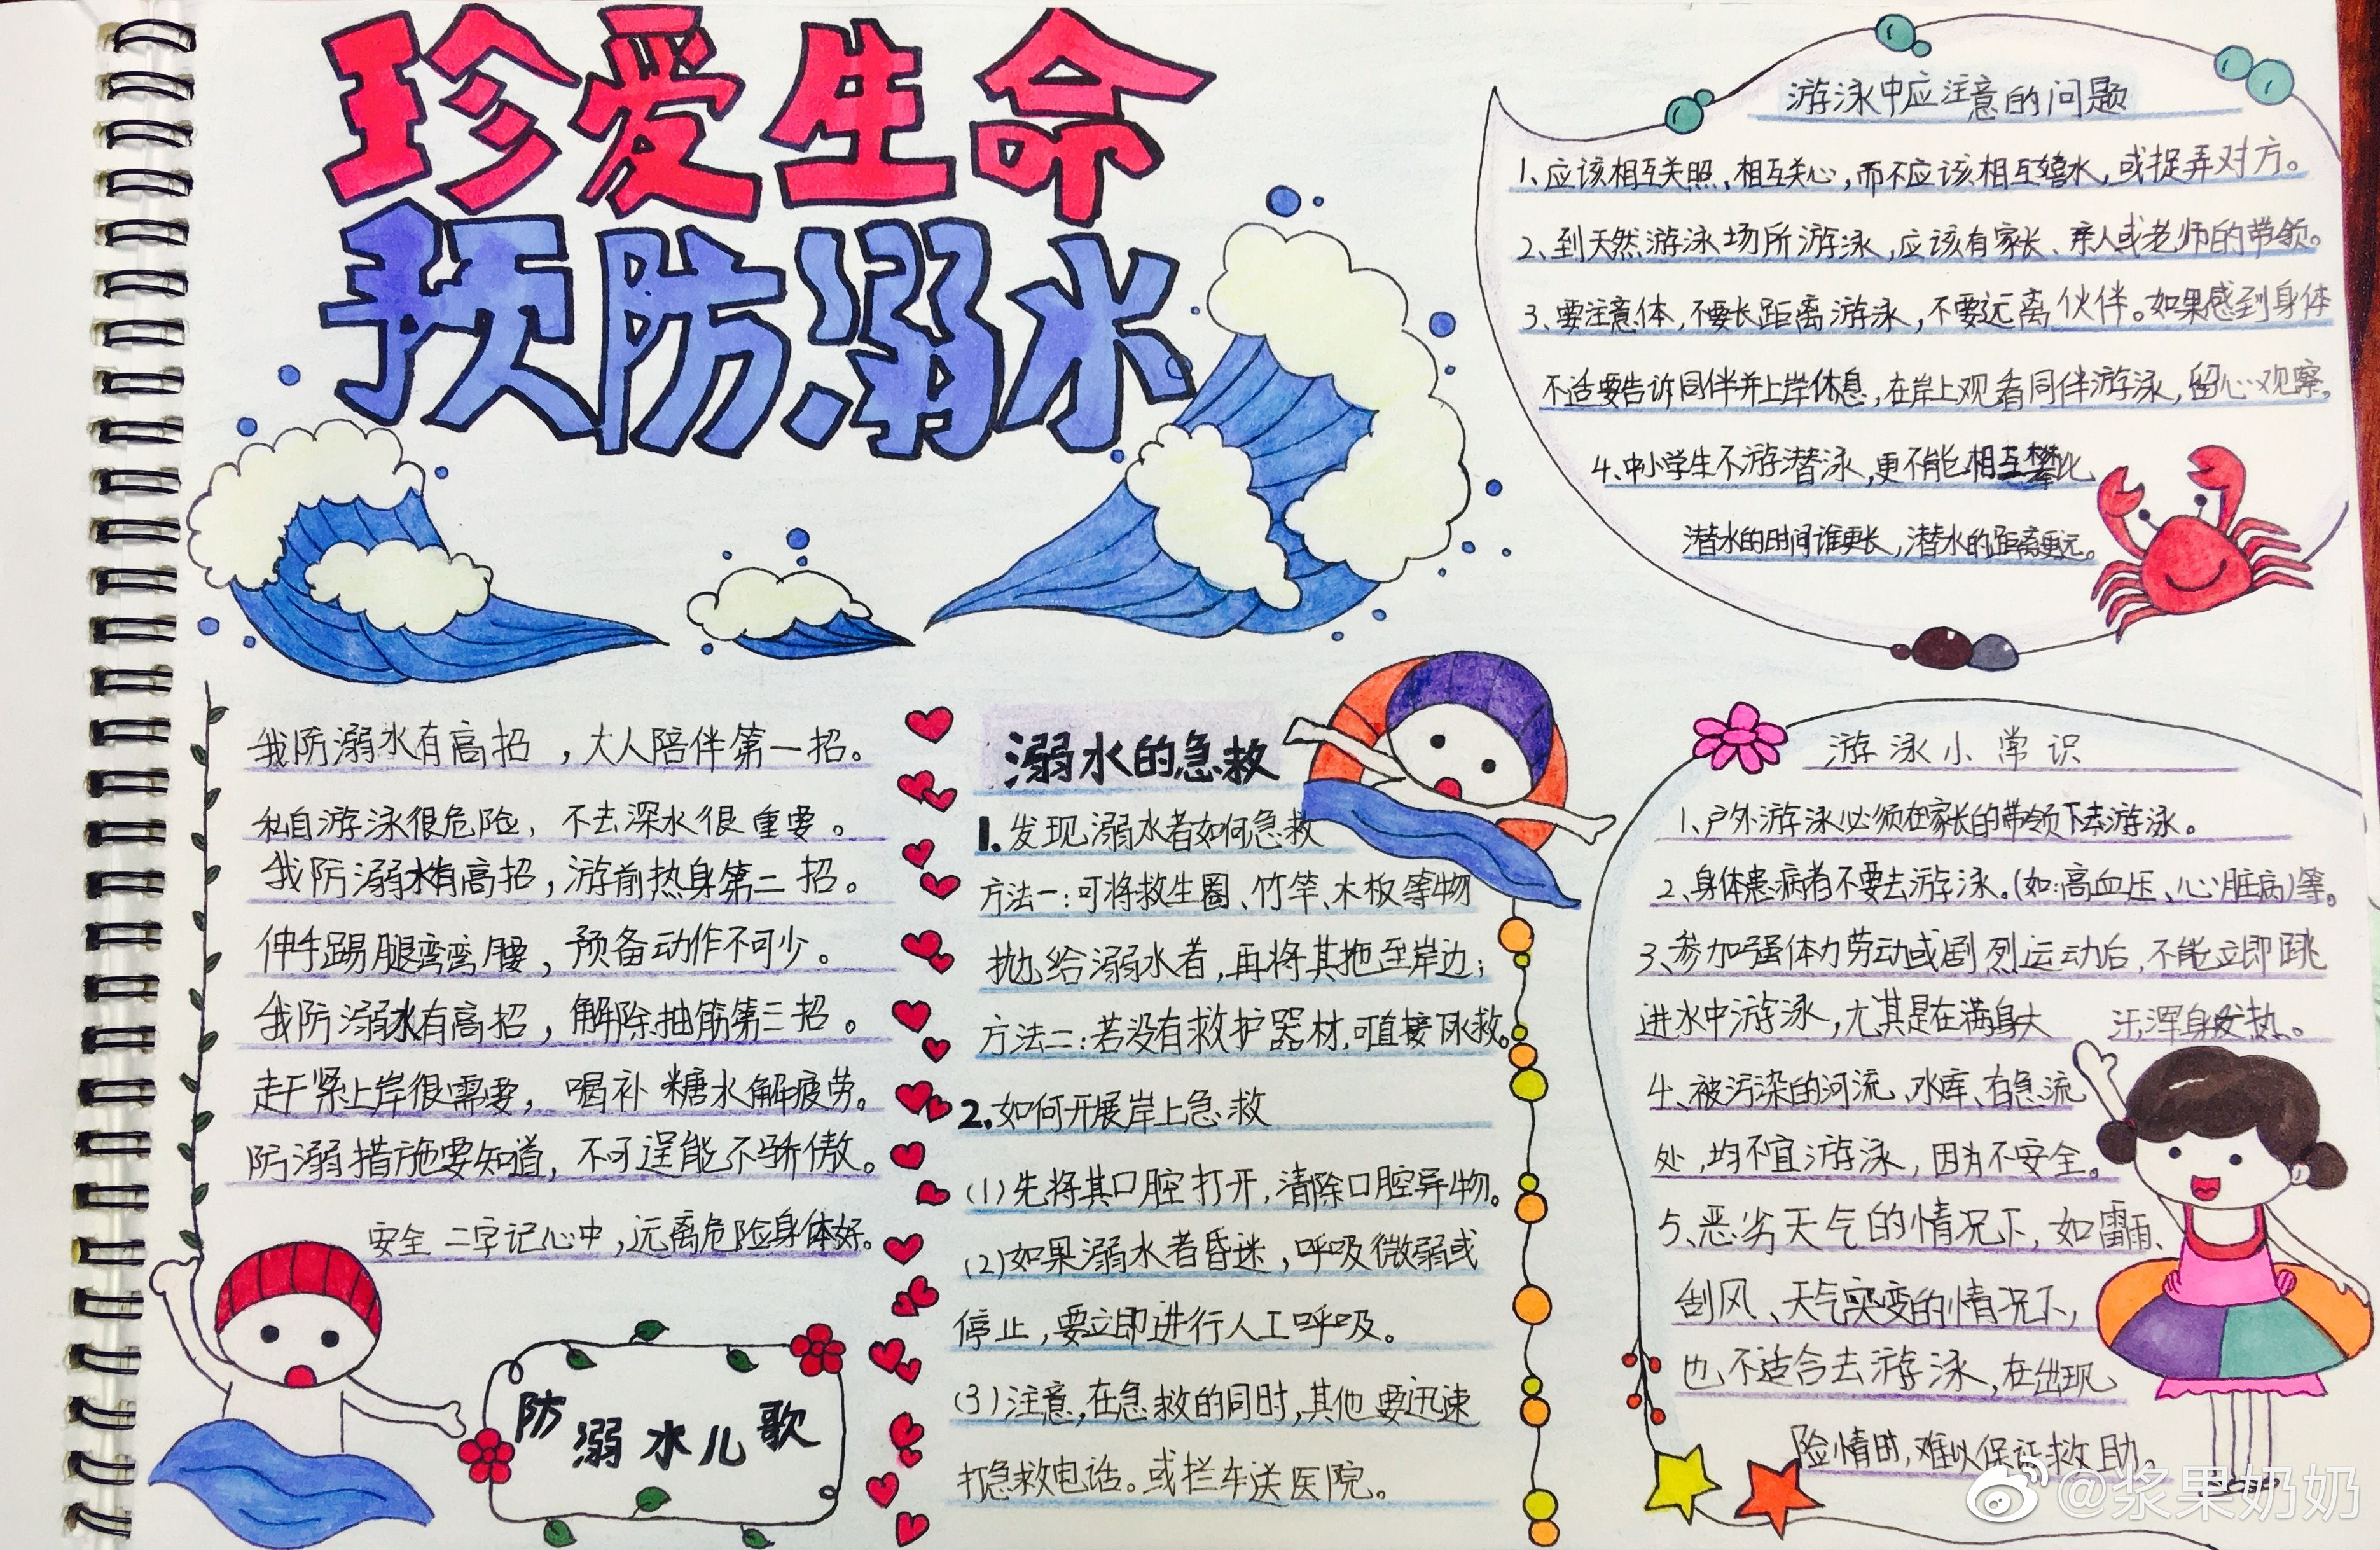 珍爱生命
预防溺水
游泳中应注意的问题
1、应该相互关照、相互关心，而不应该相互嬉水，或捉弄对方。
2、到天然游泳场所游泳，应该有家长、亲人或老师的带领。
3、要注意体，不要长距离游泳，不要远离伙伴。如果感到身体
不适要告诉同伴并上岸休息，在岸上观看同伴游泳，留心观察。
4、中小学生不游潜泳，更不能相互攀比
潜水的时间谁更长，潜水的距离更远。
我防溺水有高招，大人陪伴第一招。
私自游泳很危险，不去深水很重要。
我防溺水有高招，游前热身第二招。
伸手踢腿弯弯腰，预备动作不可少。
我防溺水有高招，解除抽筋第三招。
赶紧上岸很需要，喝补糖水解疲劳。
防溺措施要知道，不可逞能不骄傲。
安全二字记心中，远离危险身体好。
防溺水儿歌
溺水的急救
1.发现溺水者如何急救
方法一：可将救生圈、竹竿、木板等物
抛给溺水者，再将其拖至岸边；
方法二：若没有救护器材，可直接下水救。
2.如何开展岸上急救
(1)先将其口腔打开，清除口腔异物。
(2)如果溺水者昏迷，呼吸微弱或
停止，要立即进行人工呼吸。
(3)注意，在急救的同时，其他要迅速
打急救电话。或拦车送医院。
游泳小常识
1、户外游泳必须在家长的带领下去游泳。
2、身体患病者不要去游泳。(如：高血压、心脏病)等。
3、参加强体力劳动或剧烈运动后，不能立即跳
进水中游泳，尤其是在满身大汗，浑身发热。
4、被污染的河流、水库、有急流
处，均不宜游泳，因为不安全。
5、恶劣天气的情况下，如雷雨、
刮风、天气突变的情况下，
也不适合去游泳，在出现
险情时，难以保证救助。
@浆果奶奶